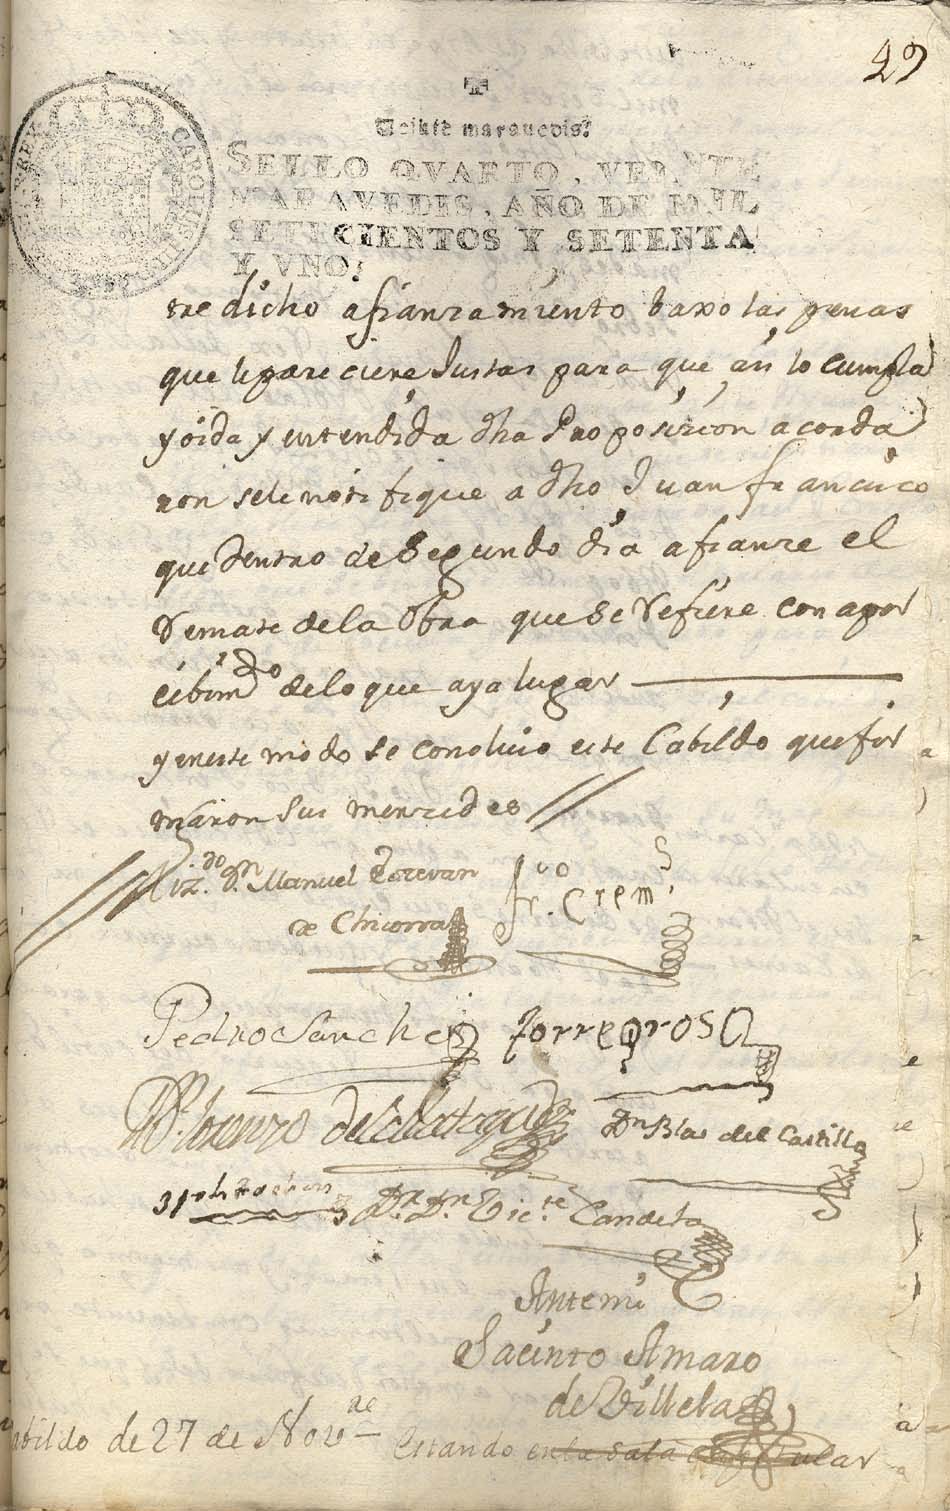 49
Veinte maravedis.
SELLO QVARTO, VEINTE
MARAVEDIS, AÑO DE MIL
SETECIENTOS Y SETENTA
Y VNO.
CAROLUS III
tre dicho afianzamiento baxo las penas
que le pareciere Justas para que asi lo cumpla
y oida y entendida dha Proposizion acorda
ron se le notifique a dho Juan francisco
que Dentro de Segundo dia afianze el
Remate de la Obra que Se Refiere con aper
cibimdo de lo que aya lugar
y en este modo se concluio este Cabildo que fir
maron Sus merzedes
Liz.do Dn Manuel Estevan
de Chicorra
Pedro Sanchez Torregrosa
Dn Blas del Castillo
Dr. Dn Victe Candela
Antemi
Jacinto Amaro
de Villela
abildo de 27 de Novre
Estando en la sala Capitular